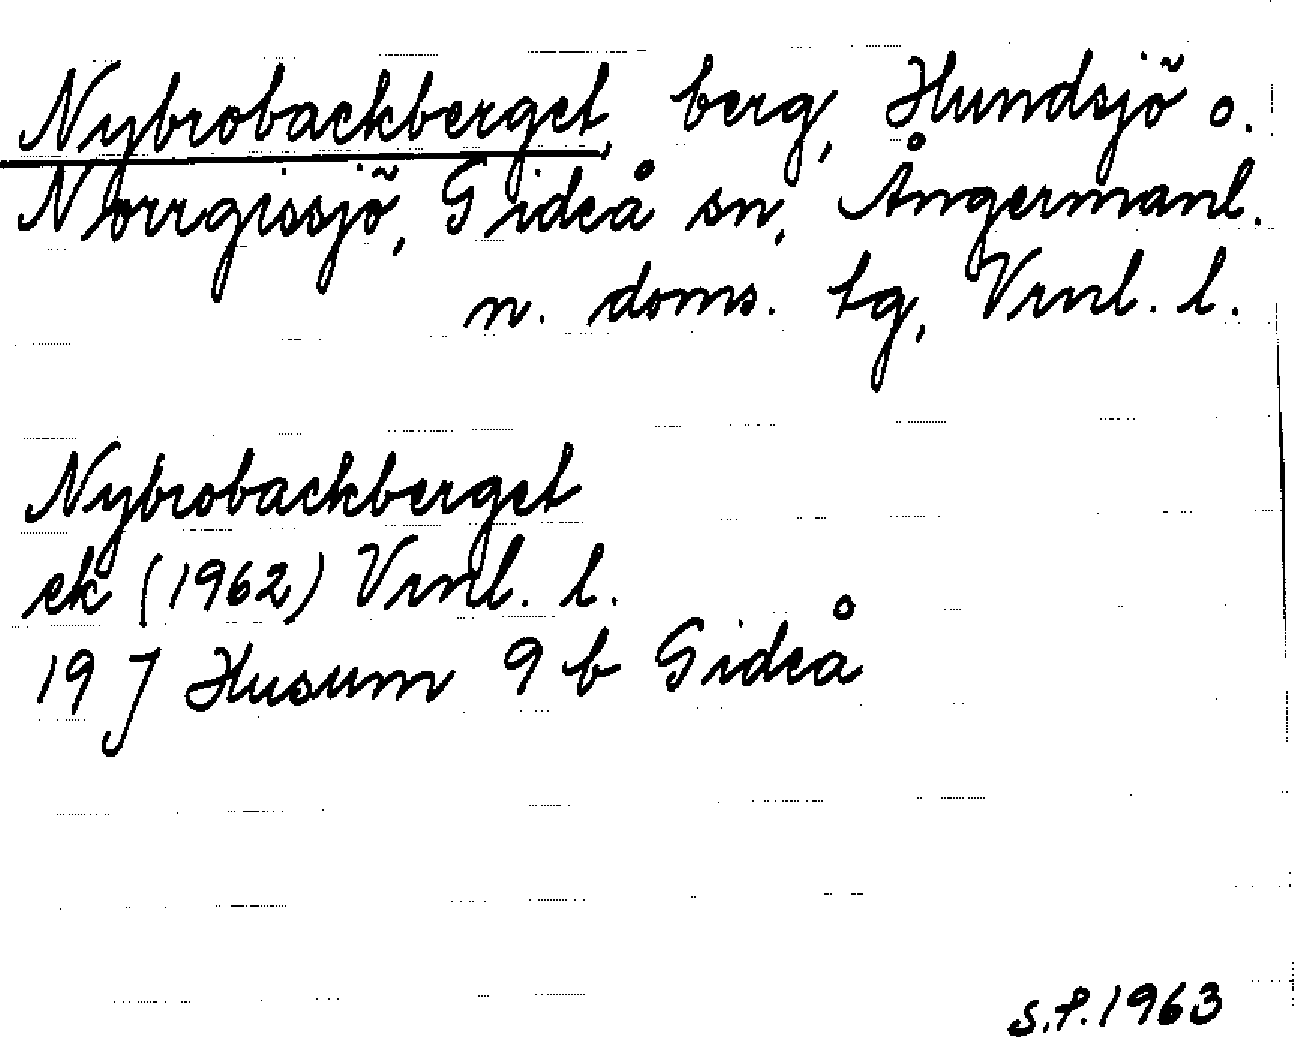 Nybrobackberget, berg, Hundsjö o.
Norrgissjö, Gideå sn, Ångermanl.
n. doms. tg, Vrnl. l.
Nybrobackberget
ek (1962) Vrnl. l.
19 J Husum 9 b Gideå
S.F. 1963